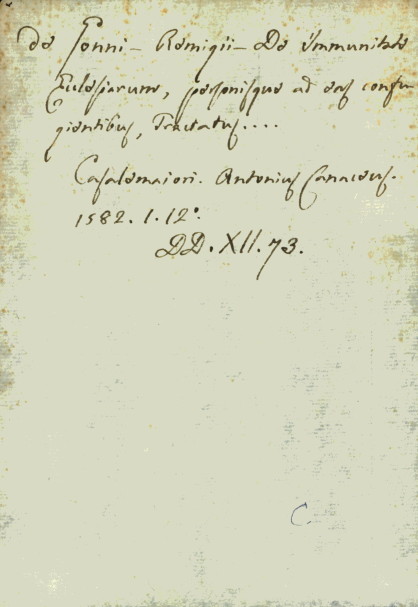 De Gonni - Remigii - De immunitate
Ecclesiarum, personisque ad eas confu
gientibus, Tractatus....
Casalemaiori. Antonius Canaceus.
1582. 1. 12°.
DD. XII. 73.
C.